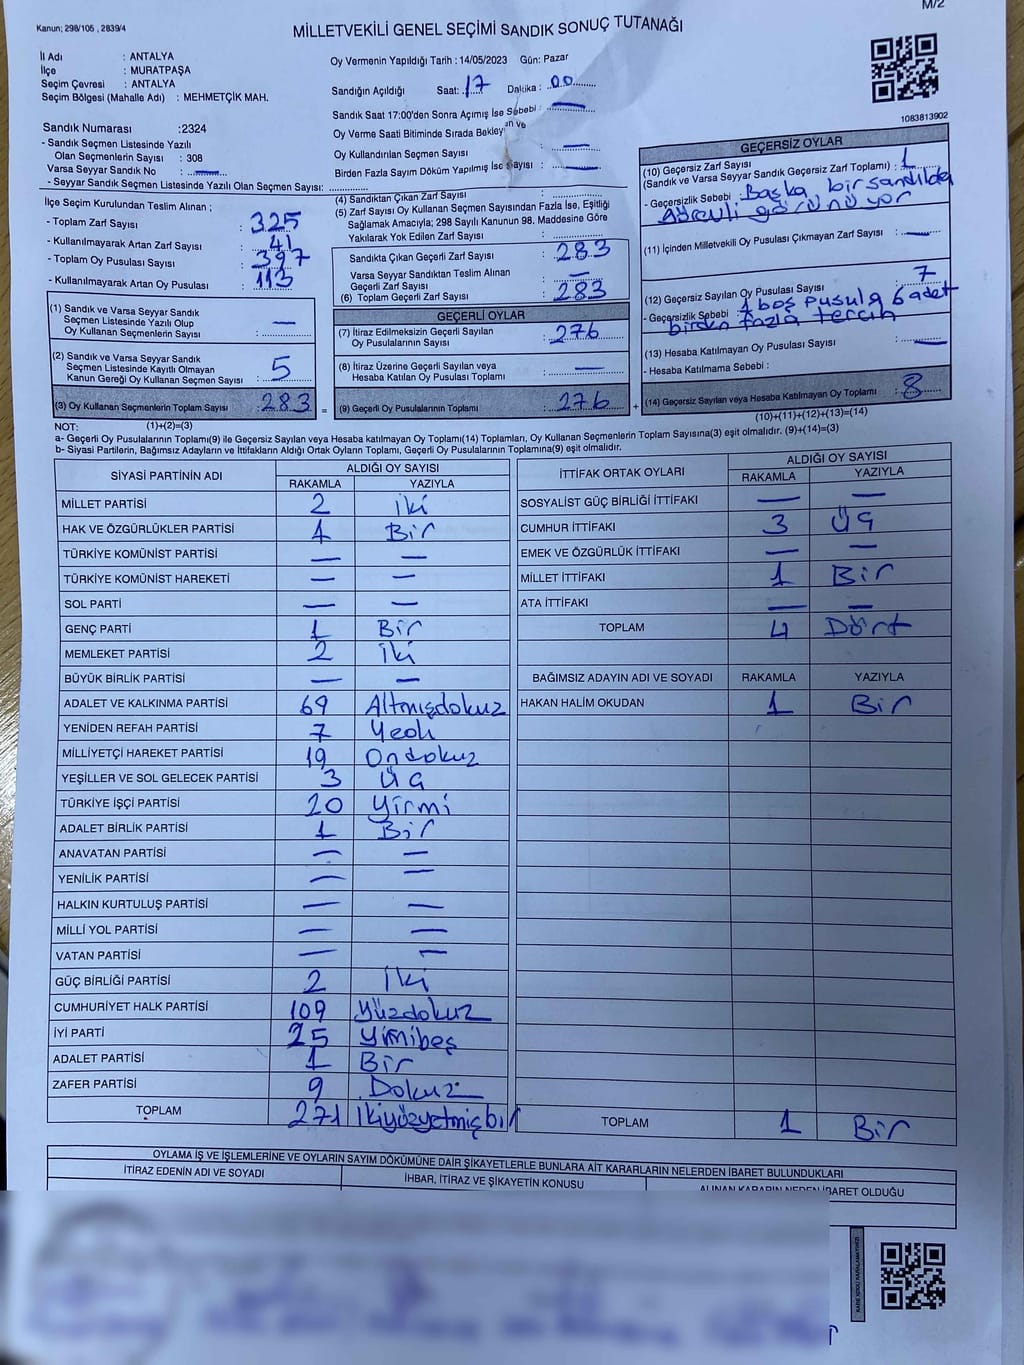 M/2
Kanun; 298/105 , 2839/4
MİLLETVEKİLİ GENEL SEÇİMİ SANDIK SONUÇ TUTANAĞI
İl Adı : ANTALYA
İlçe : MURATPAŞA
Seçim Çevresi : ANTALYA
Seçim Bölgesi (Mahalle Adı) : MEHMETÇİK MAH.
Sandık Numarası :2324
- Sandık Seçmen Listesinde Yazılı
Olan Seçmenlerin Sayısı : 308
Varsa Seyyar Sandık No —
- Seyyar Sandık Seçmen Listesinde Yazılı Olan Seçmen Sayısı:
Oy Vermenin Yapıldığı Tarih : 14/05/2023 Gün: Pazar
Sandığın Açıldığı Saat: 17 Dakika : 00
Sandık Saat 17:00'den Sonra Açımış İse Sebebi : —
Oy Verme Saati Bitiminde Sırada
Oy Kullandırılan Seçmen Sayısı —
Birden Fazla Sayım Döküm Yapılmış İse Sayısı : —
1083813902
İlçe Seçim Kurulundan Teslim Alınan ;
- Toplam Zarf Sayısı : 325
- Kullanılmayarak Artan Zarf Sayısı : 41
- Toplam Oy Pusulası Sayısı : 397
- Kullanılmayarak Artan Oy Pusulası : 113
(1) Sandık ve Varsa Seyyar Sandık
Seçmen Listesinde Yazılı Olup
Oy Kullanan Seçmenlerin Sayısı : —
(2) Sandık ve Varsa Seyyar Sandık
Seçmen Listesinde Kayıtlı Olmayan
Kanun Gereği Oy Kullanan Seçmen Sayısı : 5
(3) Oy Kullanan Seçmenlerin Toplam Sayısı : 283 =
(1)+(2)=(3)
(4) Sandıktan Çıkan Zarf Sayısı :
(5) Zarf Sayısı Oy Kullanan Seçmen Sayısından Fazla İse, Eşitliği
Sağlamak Amacıyla; 298 Sayılı Kanunun 98. Maddesine Göre
Yakılarak Yok Edilen Zarf Sayısı :
Sandıkta Çıkan Geçerli Zarf Sayısı : 283
Varsa Seyyar Sandıktan Teslim Alınan
Geçerli Zarf Sayısı : —
(6) Toplam Geçerli Zarf Sayısı : 283
GEÇERLİ OYLAR
(7) İtiraz Edilmeksizin Geçerli Sayılan
Oy Pusulalarının Sayısı : 276
(8) İtiraz Üzerine Geçerli Sayılan veya
Hesaba Katılan Oy Pusulası Toplamı : —
(9) Geçerli Oy Pusulalarının Toplamı : 276 +
GEÇERSİZ OYLAR
(10) Geçersiz Zarf Sayısı : 1
(Sandık ve Varsa Seyyar Sandık Geçersiz Zarf Toplamı)
- Geçersizlik Sebebi : Başka bir sandıkda
görevli görünüyor
(11) İçinden Milletvekili Oy Pusulası Çıkmayan Zarf Sayısı : —
(12) Geçersiz Sayılan Oy Pusulası Sayısı : 7
- Geçersizlik Sebebi : 1 boş pusula 6 adet
birden fazla tercih
(13) Hesaba Katılmayan Oy Pusulası Sayısı : —
- Hesaba Katılmama Sebebi :
(14) Geçersiz Sayılan veya Hesaba Katılmayan Oy Toplamı : 8
(10)+(11)+(12)+(13)=(14)
NOT:
a- Geçerli Oy Pusulalarının Toplamı(9) ile Geçersiz Sayılan veya Hesaba katılmayan Oy Toplamı(14) Toplamları, Oy Kullanan Seçmenlerin Toplam Sayısına(3) eşit olmalıdır. (9)+(14)=(3)
b- Siyasi Partilerin, Bağımsız Adayların ve İttifakların Aldığı Ortak Oyların Toplamı, Geçerli Oy Pusulalarının Toplamına(9) eşit olmalıdır.
SİYASİ PARTİNİN ADI ALDIĞI OY SAYISI
RAKAMLA YAZIYLA
MİLLET PARTİSİ 2 iki
HAK VE ÖZGÜRLÜKLER PARTİSİ 1 Bir
TÜRKİYE KOMÜNİST PARTİSİ — —
TÜRKİYE KOMÜNİST HAREKETİ — —
SOL PARTİ — —
GENÇ PARTİ 1 Bir
MEMLEKET PARTİSİ 2 iki
BÜYÜK BİRLİK PARTİSİ — —
ADALET VE KALKINMA PARTİSİ 69 Altmışdokuz
YENİDEN REFAH PARTİSİ 7 Yedi
MİLLİYETÇİ HAREKET PARTİSİ 19 Ondokuz
YEŞİLLER VE SOL GELECEK PARTİSİ 3 Üç
TÜRKİYE İŞÇİ PARTİSİ 20 Yirmi
ADALET BİRLİK PARTİSİ 1 Bir
ANAVATAN PARTİSİ — —
YENİLİK PARTİSİ — —
HALKIN KURTULUŞ PARTİSİ — —
MİLLİ YOL PARTİSİ — —
VATAN PARTİSİ — —
GÜÇ BİRLİĞİ PARTİSİ 2 İki
CUMHURİYET HALK PARTİSİ 109 Yüzdokuz
İYİ PARTİ 25 Yirmibeş
ADALET PARTİSİ 1 Bir
ZAFER PARTİSİ 9 Dokuz
TOPLAM 271 ikiyüzyetmişbir
İTTİFAK ORTAK OYLARI ALDIĞI OY SAYISI
RAKAMLA YAZIYLA
SOSYALİST GÜÇ BİRLİĞİ İTTİFAKI — —
CUMHUR İTTİFAKI 3 Üç
EMEK VE ÖZGÜRLÜK İTTİFAKI — —
MİLLET İTTİFAKI 1 Bir
ATA İTTİFAKI — —
TOPLAM 4 Dört
BAĞIMSIZ ADAYIN ADI VE SOYADI RAKAMLA YAZIYLA
HAKAN HALİM OKUDAN 1 Bir
TOPLAM 1 Bir
OYLAMA İŞ VE İŞLEMLERİNE VE OYLARIN SAYIM DÖKÜMÜNE DAİR ŞİKAYETLERLE BUNLARA AİT KARARLARIN NELERDEN İBARET BULUNDUKLARI
İTİRAZ EDENİN ADI VE SOYADI İHBAR, İTİRAZ VE ŞİKAYETİN KONUSU ALINAN KARARIN NEDEN İBARET OLDUĞU